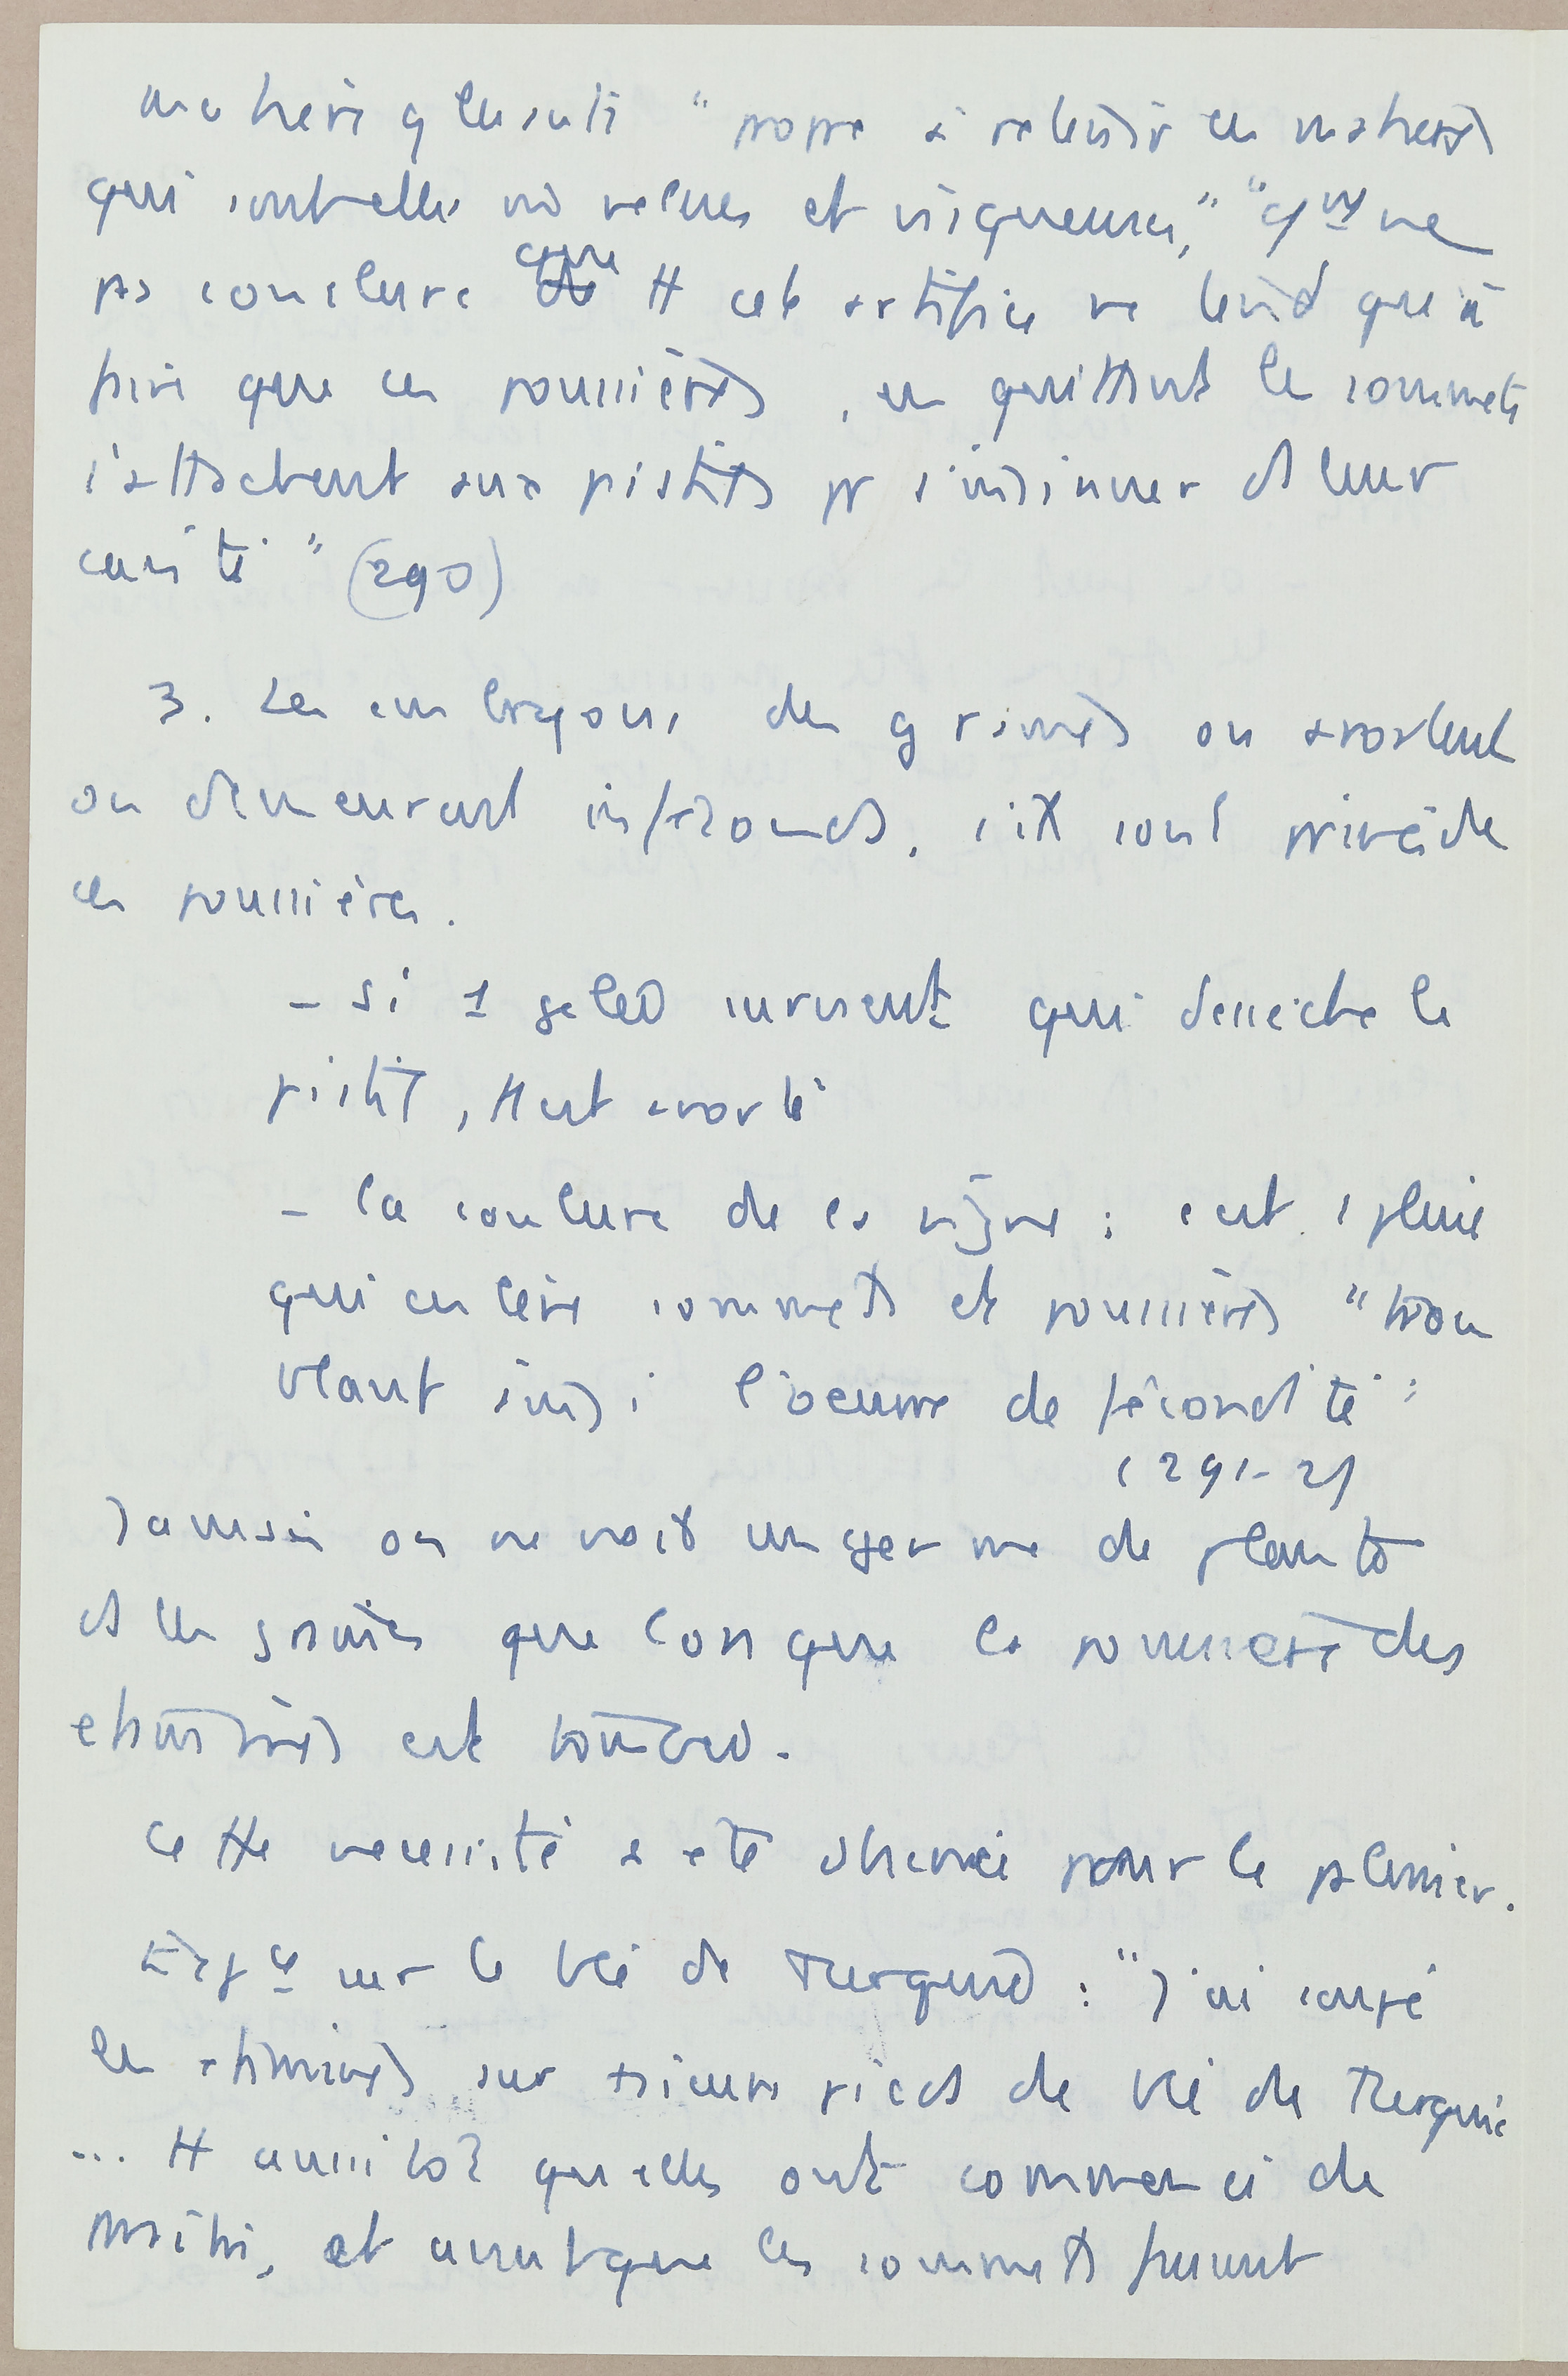 matière gluante "propre à retenir les matières
qui sont elles mêmes velues et visqueuses," "
pas conclure que tt cet artifice ne tend qu'à
faire que ces poussières, en quittant les sommets
s'attachent aux pistils pr s'insinuer ds leur
cavité" (290)
3. Les embryons des graines ou avortent
ou demeurent inféconds, s'ils sont privés de
ces poussières.
- si 1 gelée survient qui dessèche le
pistil, tt est avorté
- la coulure de la vigne : c'est 1 pluie
qui enlève sommets et poussières "trou
blant ainsi l'oeuvre de fécondité"
(291-2)
Jamais on ne voit un germe de plante
ds les graines que lorsque la poussière des
étamines est tombée.
Cette nécessité a été observée pour le palmier.
Expce sur le blé de Turquie : "J'ai coupé
les étamines sur plusieurs pieds de blé de Turquie
... tt aussitôt qu'elles ont commencé de
paraître, et avant que les sommets fussent